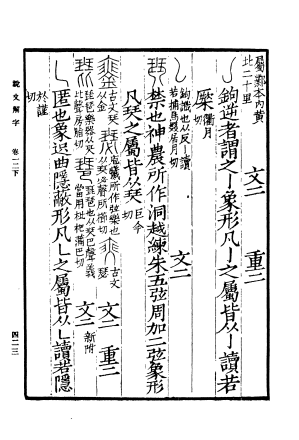 屬鄭本內黃
北二十里
文二 重二
鉤逆者謂之亅象形凡亅之屬皆从亅讀若
橜衢月切
鉤識也从反亅讀
若捕鳥罬居月切
文二
禁也神農所作洞越練朱五弦周加二弦象形
凡珡之屬皆从珡巨今切
古文珡
从金
庖犧所作弦樂也
从珡必聲所櫛切
古文
瑟
琵琶樂器从珡
比聲房脂切
琵琶也从珡巴聲義
當用枇杷蒲巴切
文二 重二
文二新附
匿也象迟曲隱蔽形凡乚之屬皆从乚讀若隱
於謹
切
說文解字 卷一二下 四二三